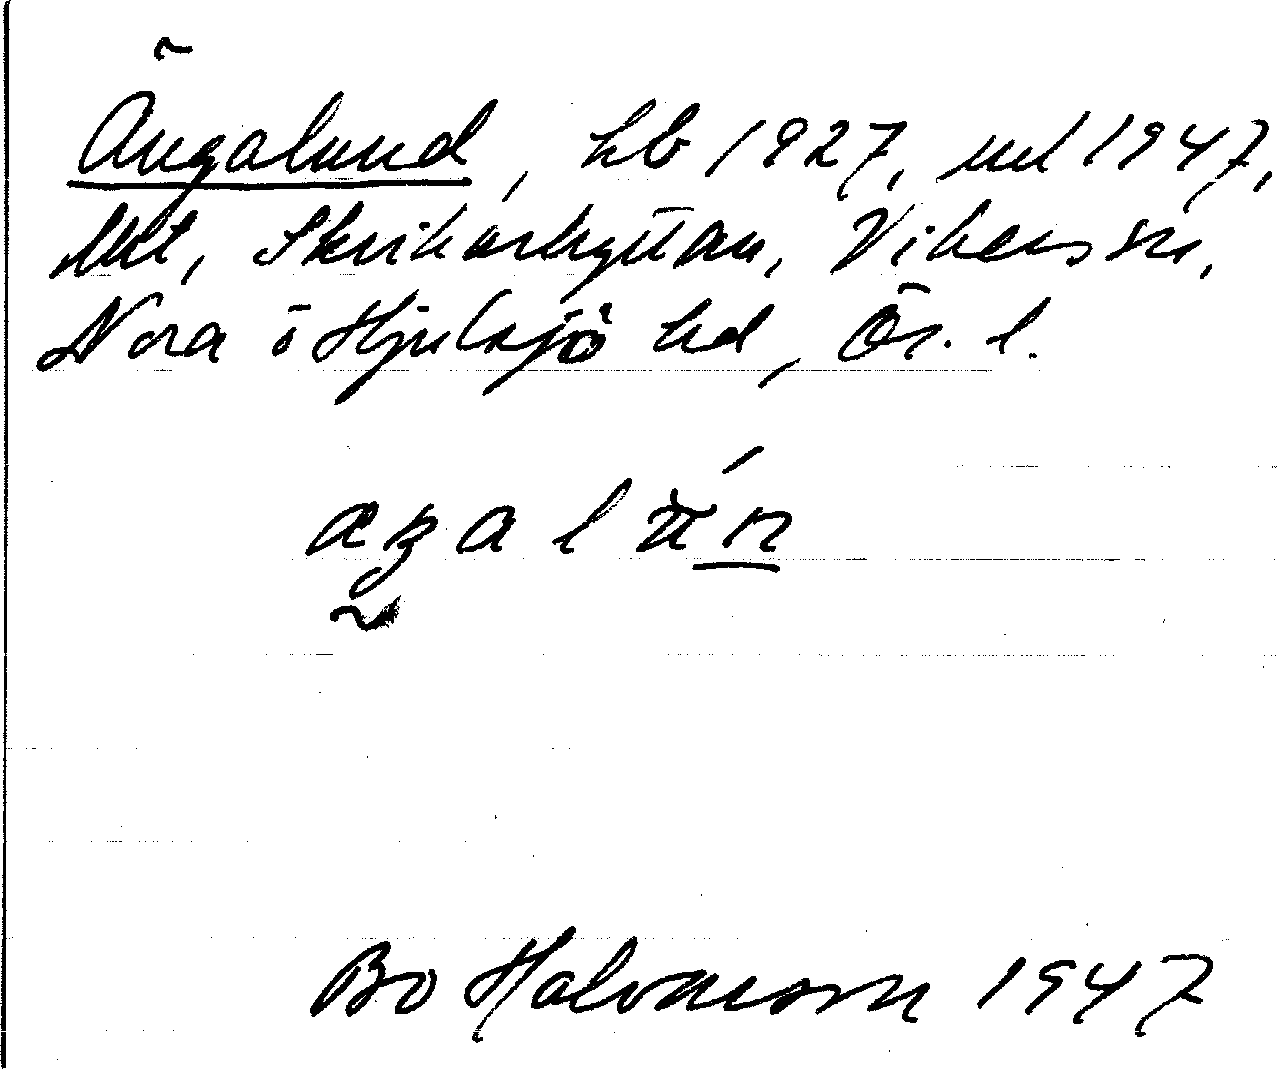 ~
Ängalund, hb 1927, ul 1947,
Utt, Skrikarhyttan, Vikers sn,
Nora o Hjulsjö hd, Ör. l.
Bo Halvarsson 1947